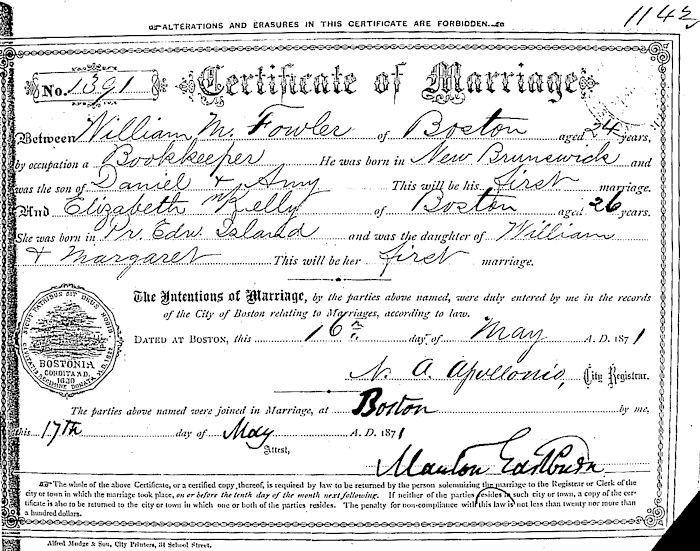 ALTERATIONS AND ERASURES IN THIS CERTIFICATE ARE FORBIDDEN.
1142
No. 1391 Certificate of Marriage
Between William M. Fowler of Boston aged 24 years,
by occupation a Bookkeeper He was born in New Brunswick and
was the son of Daniel & Amy This will be his first marriage.
And Elizabeth Kelly of Boston aged 26 years.
She was born in Pr. Edw. Island and was the daughter of William
& Margaret This will be her first marriage.
The Intentions of Marriage, by the parties above named, were duly entered by me in the records
of the City of Boston relating to Marriages, according to law.
DATED AT BOSTON, this 16th day of May A. D. 1871
N. A. Apollonio, City Registrar.
BOSTONIA
CONDITA A.D.
1630
The parties above named were joined in Marriage, at Boston by me,
this 17th day of May A. D. 1871
Attest,
Manton Eastburn
The whole of the above Certificate, or a certified copy thereof, is required by law to be returned by the person solemnizing the marriage to the Registrar or Clerk of the
city or town in which the marriage took place, on or before the tenth day of the month next following. If neither of the parties resides in such city or town, a copy of the cer-
tificate is also to be returned to the city or town in which one or both of the parties resides. The penalty for non-compliance with this law is not less than twenty nor more than
a hundred dollars.
Alfred Mudge & Son, City Printers, 34 School Street.